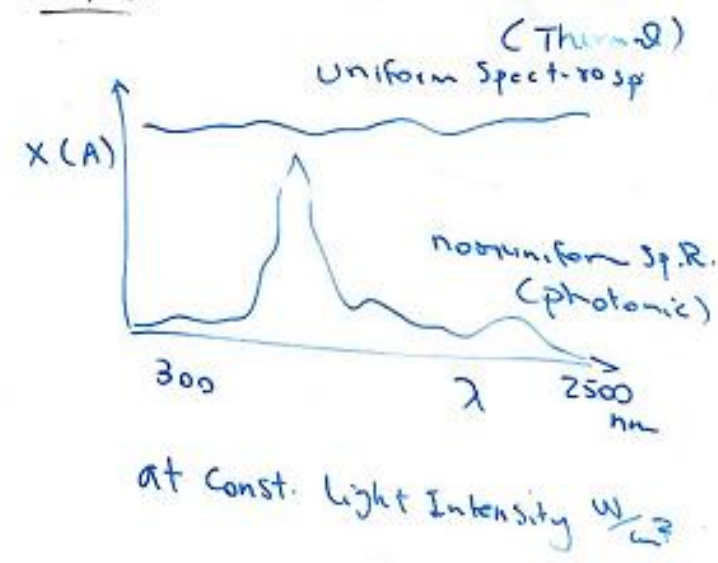 (Thermal)
Uniform Spect-rosp
X(A)
nonuniform Sp.R.
(photonic)
300
λ
2500
nm
at Const. Light Intensity W/m²